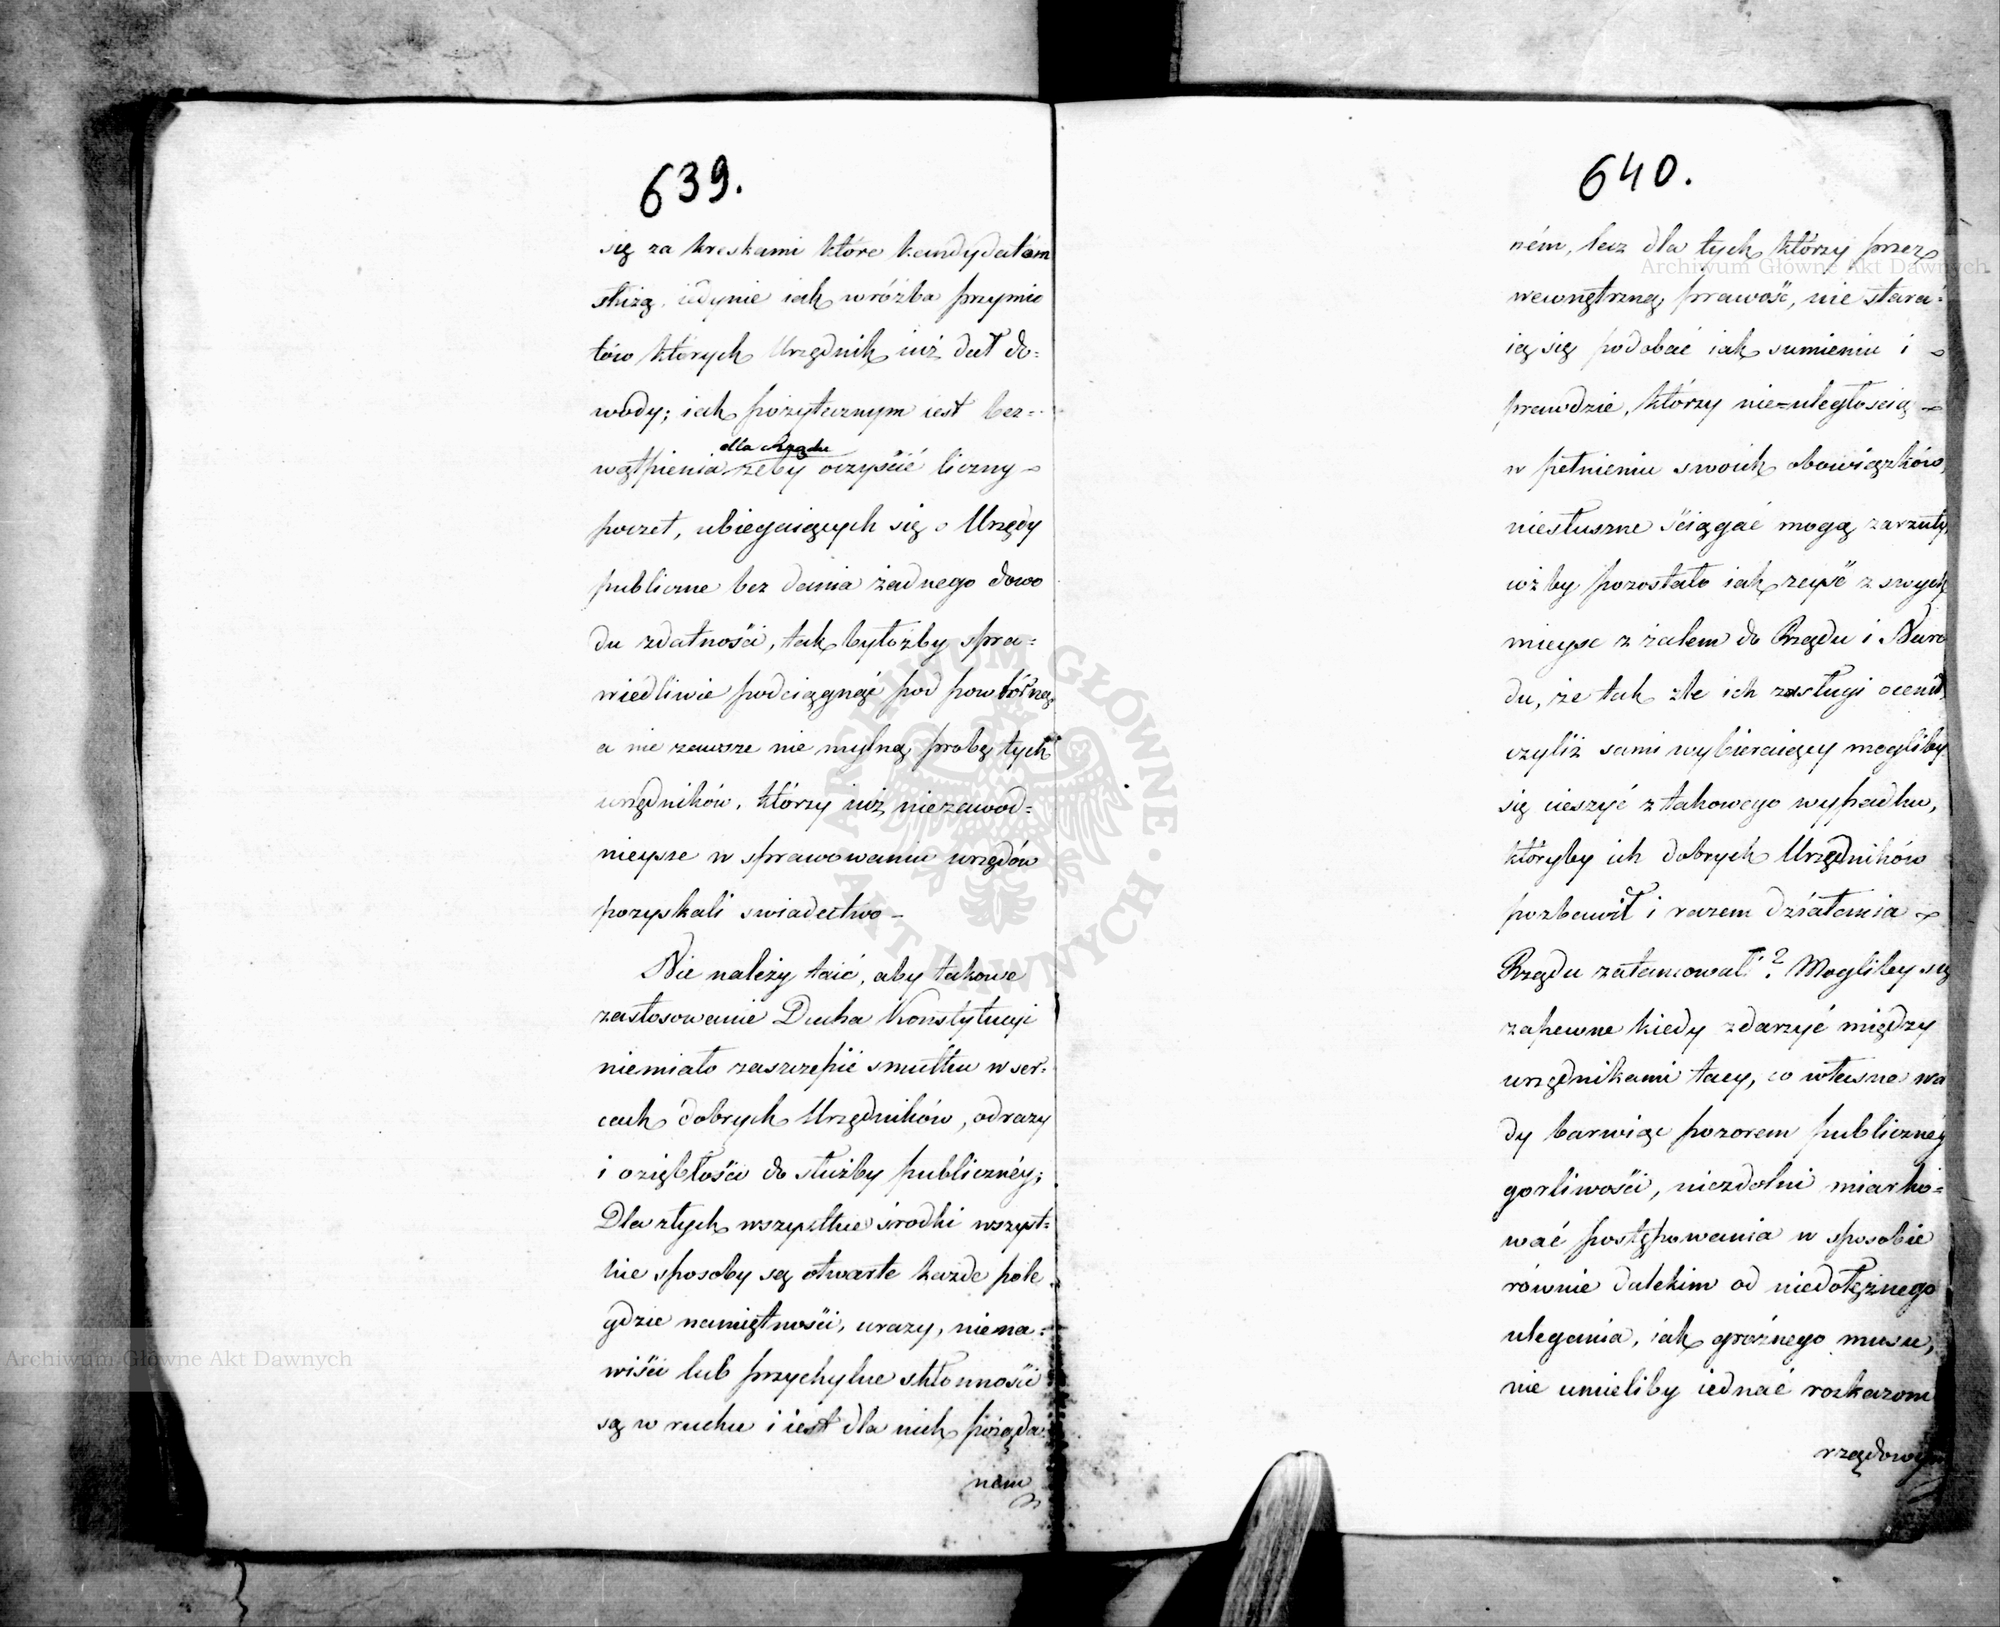 639.
się za kreskami które kandydatóm
służą, iedynie iak wróżba przymio
tów których Urzędnik iuż dał do=
wody; iak pożytecznym iest bez=
dla Rządu
wątpienia żeby oczyścić liczny
poczet, ubiegaiących się o Urzędy
publiczne bez dania żadnego dowo
du zdatności, tak byłożby spra=
wiedliwie podciągnąć pod powtórną
a nie zawsze nie mylną probę tych
urzędników, którzy iuż niezawod=
nieysze w sprawowaniu urzędów
pozyskali swiadectwo –
Nie należy taić, aby takowe
zastosowanie Ducha Konstytucyi
niemiało zaszczepić smutku w ser=
cach dobrych Urzędników, odrazy
i oziębłości do służby publicznéy;
Dla złych wszystkie środki wszyst=
kie sposoby są otwarte każde pole
gdzie namiętności, urazy, niena=
wiści lub przychylne skłonności
są w ruchu i iest dla nich pożąda
nem
640.
ném, lecz dla tych którzy przez
wewnętrzną prawość, nie stara=
ią się podobać iak sumieniu i
prawdzie, którzy nie=uległością
w pełnieniu swoich obowiązków,
niesłuszne ściągać mogą zarzuty,
cóżby pozostało iak zeyść z swych
mieysc z żalem do Rządu i Naro
du, że tak źle ich zasługi ocenił,
czyliż sami wybieraiący mogliby
się cieszyć z takowego wypadku,
któryby ich dobrych Urzędników
pozbawił i razem działania
Rządu zatamował? Mogliby się
zapewne kiedy zdarzyć między
urzędnikami tacy, co własne wa
dy barwiąc pozorem publicznéy
gorliwości, niezdolni miarko=
wać postępowania w sposobie
równie dalekim od niedołężnego
ulegania, iak groźnego musu,
nie umieliby iednać rozkazom
rządowym
Archiwum Główne Akt Dawnych
Archiwum Główne Akt Dawnych
ARCHIWUM GŁÓWNE AKT DAWNYCH